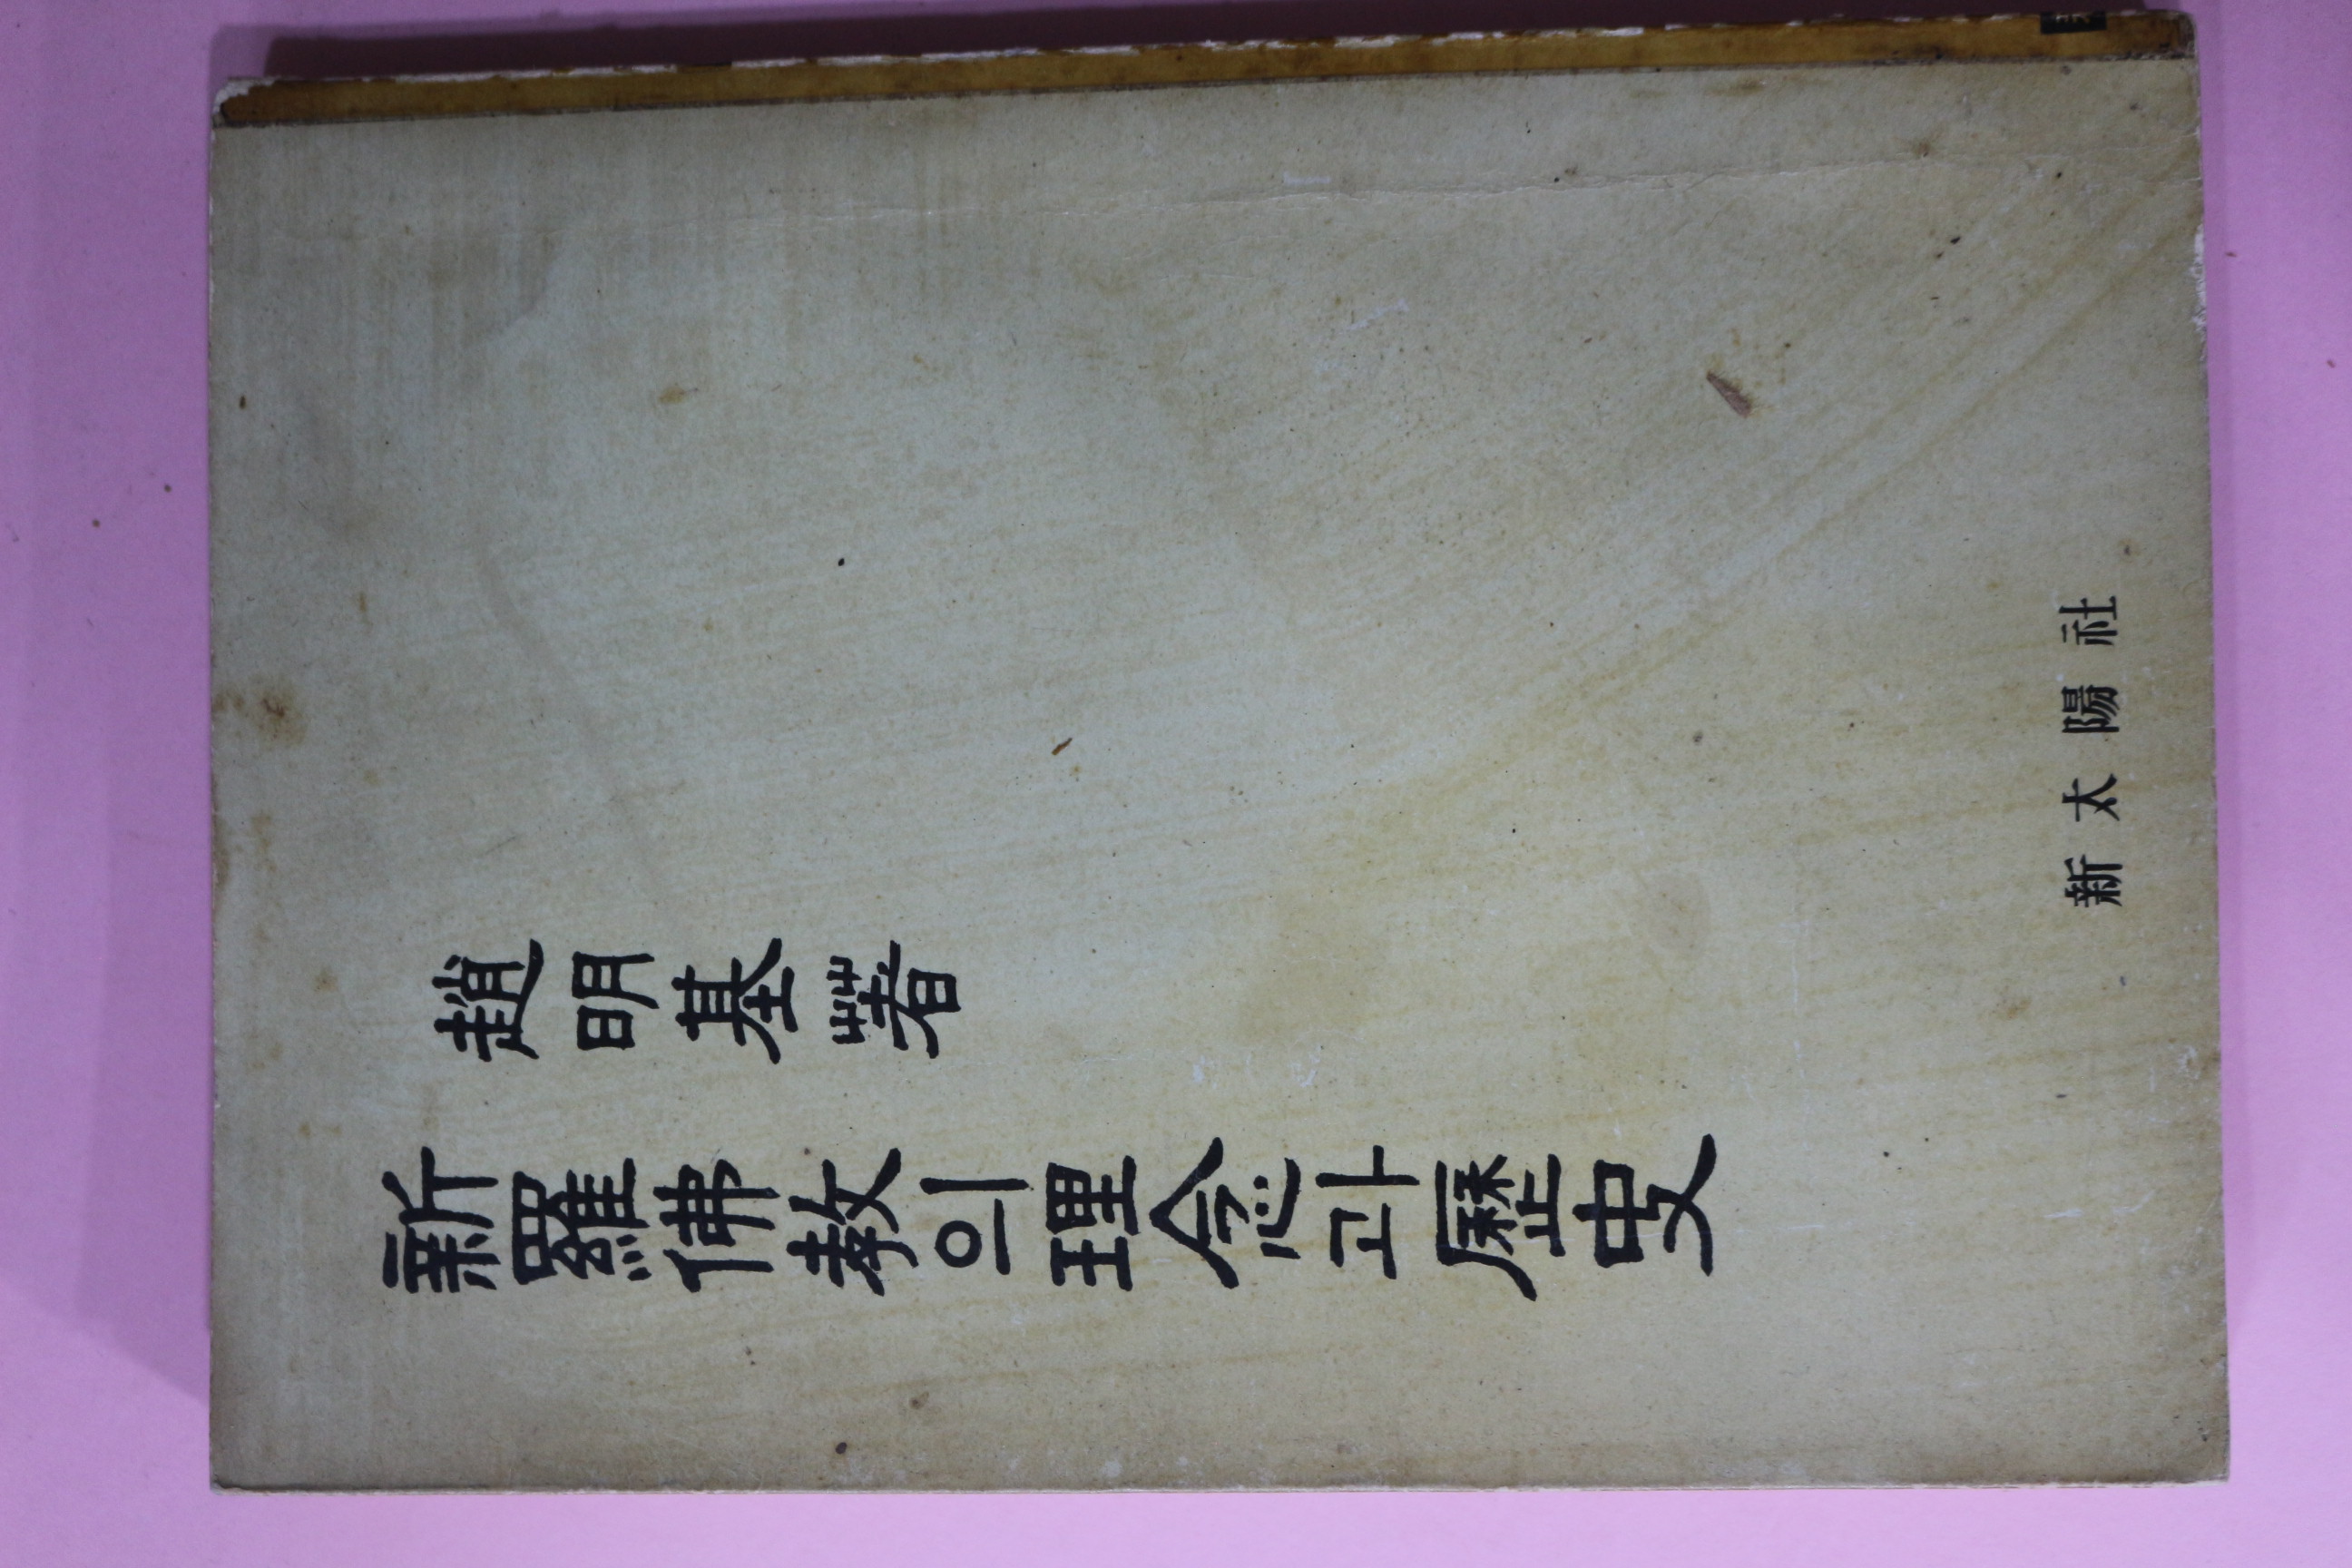 趙明基著
新羅佛敎의理念과歷史
新太陽社